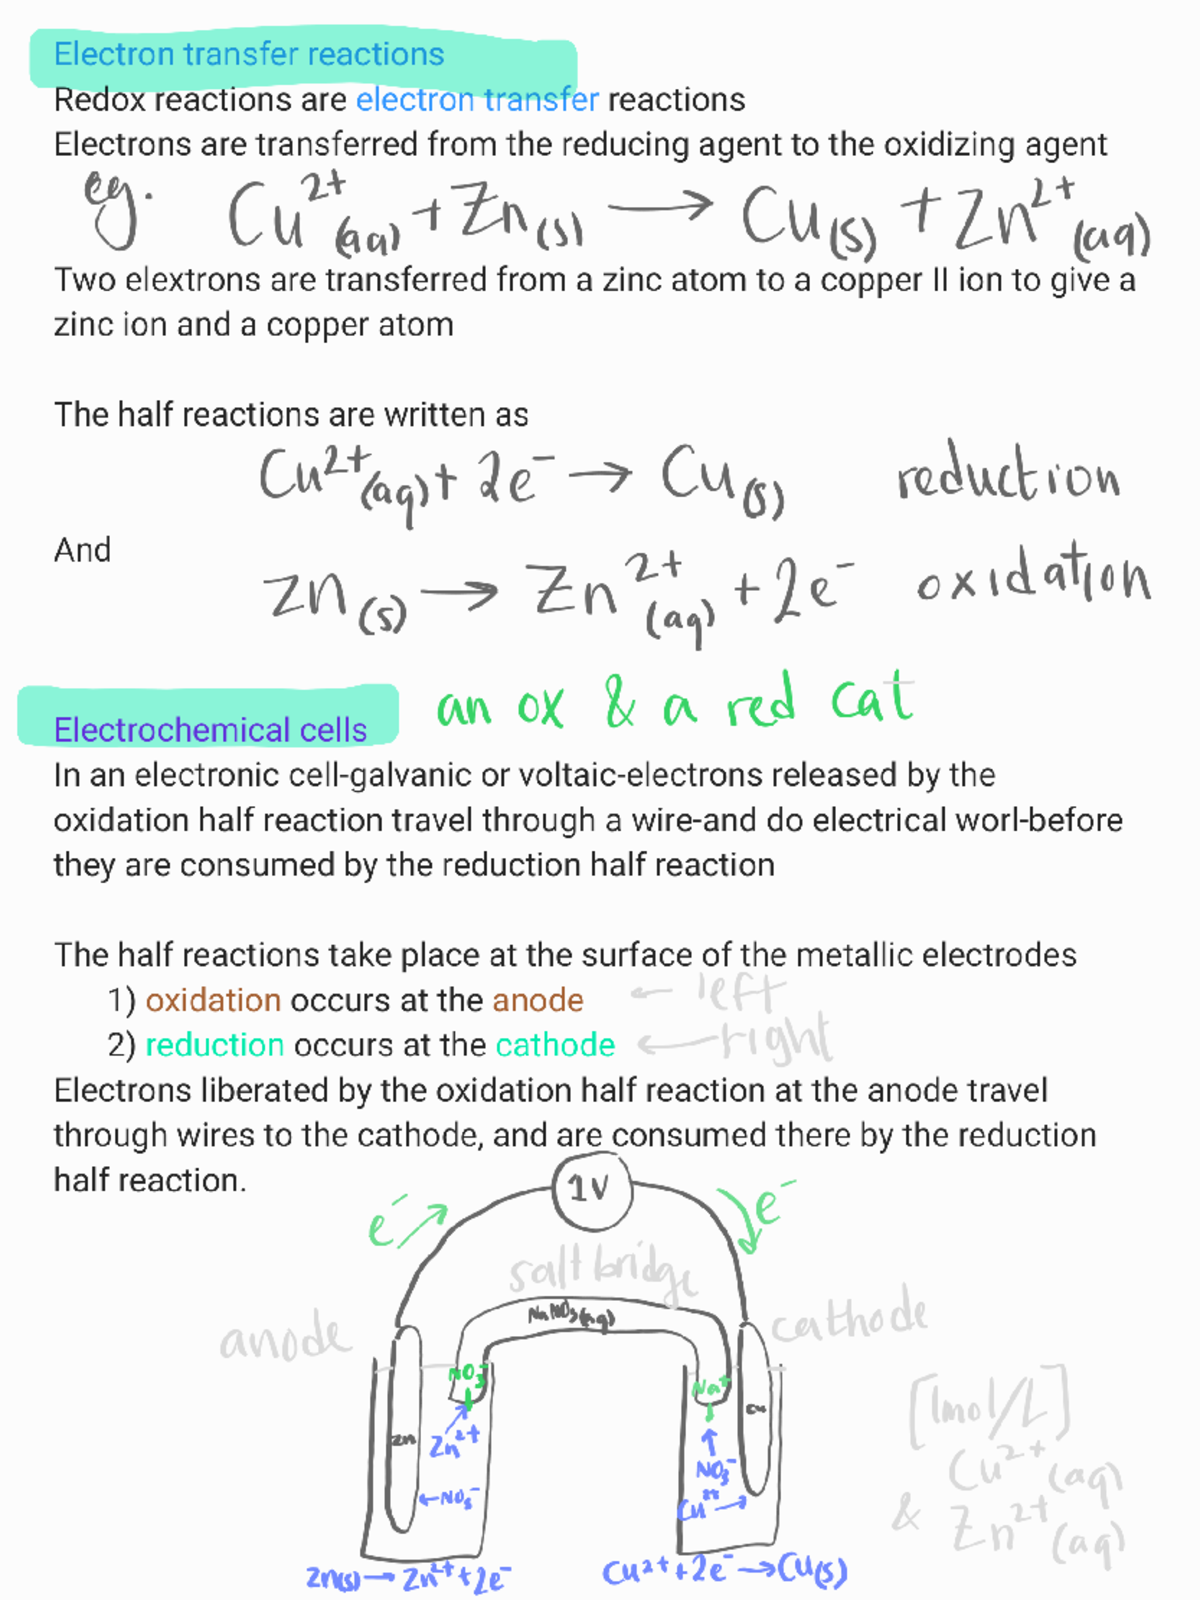 Electron transfer reactions
Redox reactions are electron transfer reactions
Electrons are transferred from the reducing agent to the oxidizing agent
eg. Cu²⁺(aq) + Zn(s) → Cu(s) + Zn²⁺(aq)
Two elextrons are transferred from a zinc atom to a copper II ion to give a
zinc ion and a copper atom
The half reactions are written as
Cu²⁺(aq) + 2e⁻ → Cu(s) reduction
And
Zn(s) → Zn²⁺(aq) + 2e⁻ oxidation
an ox & a red cat
Electrochemical cells
In an electronic cell-galvanic or voltaic-electrons released by the
oxidation half reaction travel through a wire-and do electrical worl-before
they are consumed by the reduction half reaction
The half reactions take place at the surface of the metallic electrodes
1) oxidation occurs at the anode ← left
2) reduction occurs at the cathode ← right
Electrons liberated by the oxidation half reaction at the anode travel
through wires to the cathode, and are consumed there by the reduction
half reaction.
1V
e⁻
e⁻
salt bridge
NaNO₃(aq)
anode
cathode
NO₃⁻
Na⁺
Zn
Cu
Zn²⁺
NO₃⁻
← NO₃⁻
Cu²⁺ →
[1mol/L]
Cu²⁺(aq)
& Zn²⁺(aq)
Zn(s) → Zn²⁺ + 2e⁻
Cu²⁺ + 2e⁻ → Cu(s)